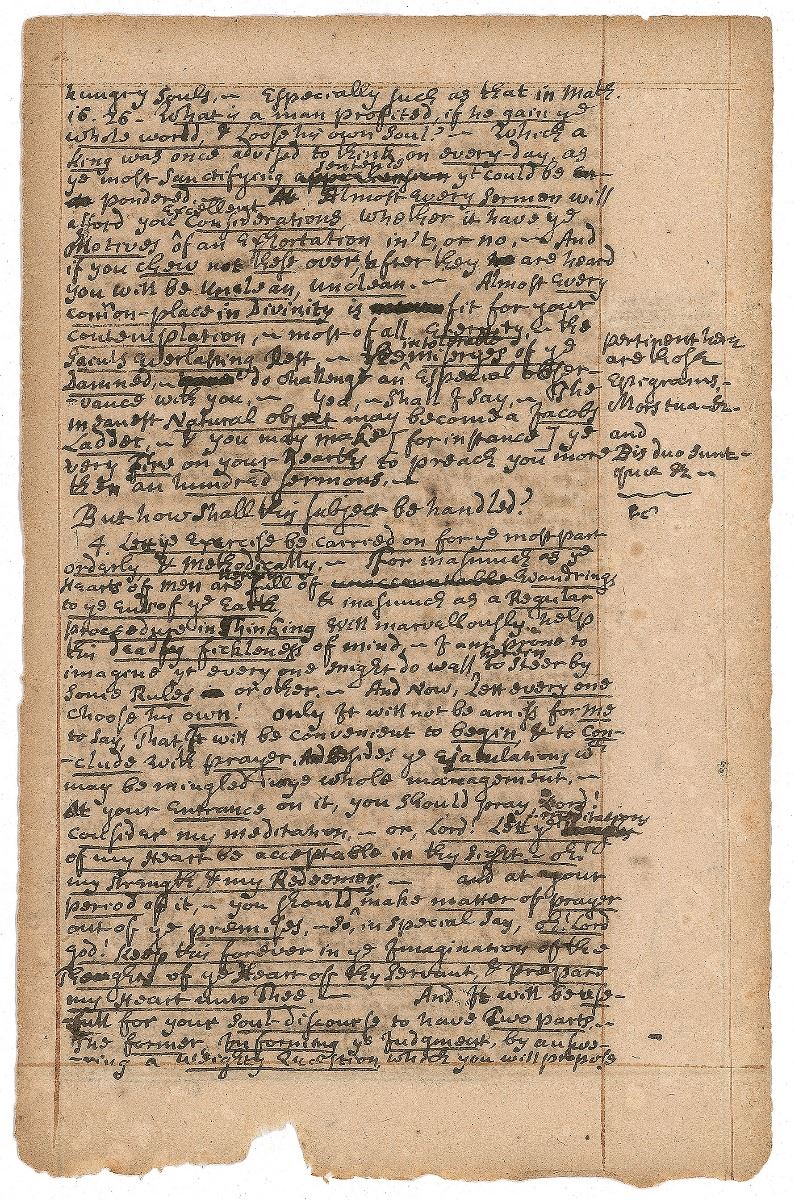 hungry Souls, ~ Especially such as that in Math.
16. 26. What is a man profited, if he gain ye
whole world, & Loose his own Soul? ~ Which a
King was once advised to think on every-day, as
ye most Sanctifying sentence yt could be
pondered. Almost Every Sermon will
afford you Excellent Considerations, whether it have ye
Motives of an Exhortation in't, or no. ~ And
if you chew not these over, after they are heard
you will be Unclean, unclean. ~ Almost Every
comon-place in Divinity is fit for your
contemplation, ~ most of all Eternity, & the
Saints Everlasting Rest. ~ The intolerable miseryes of ye
Damned, ~ do challenge an Especial obser-
-vance with you, ~ Yea, ~ Shall I say, ~ The
Natural object may become a Jacobs
Ladder, ~ & you may make [for instance] ye
very Fire on your Hearths to preach you more
then an hundred sermons. ~
But how shall this subject be handled?
4. Lett ye Exercise be carried on for ye most part
orderly & Methodically, ~ Forasmuch as ye
Hearts of men are full of Wandrings
to ye Ends of ye Earth, & inasmuch as a Regular
proceedure in Thinking will marvellously help
this deadly fickleness of mind, ~ I am prone to
imagine yt every one might do well to steer by
some Rules or other. ~ And Now, Lett every one
choose his own! Only It will not be amiss for me
to say, That It will be convenient to begin, & to Con-
-clude with prayer, besides ye Ejaculations wc
may be mingled in ye whole management. ~
At your Entrance on it, you should pray, Lord!
Consider my meditation, ~ or, Lord! Lett ye meditations
of my Heart be acceptable in thy Sight ~ oh!
my Strength, & my Redeemer. ~ and at your
period of it, ~ you should make matter of prayer
out of ye premises, ~ So, in special say, oh! Lord
God! Keep this forever in ye Imagination of the
Thoughts of ye Heart of thy Servant, & prepare
my Heart unto Thee. ~ And It will be use-
-full for your Soul-discourse to have Two parts. ~
The former, Informing ye Judgment, by answe-
-ring a weighty Question, which you will propose
pertinent here
are those
Epigrams. -
Mors tua
and
Bis duo sunt -
quae &c ~
&c